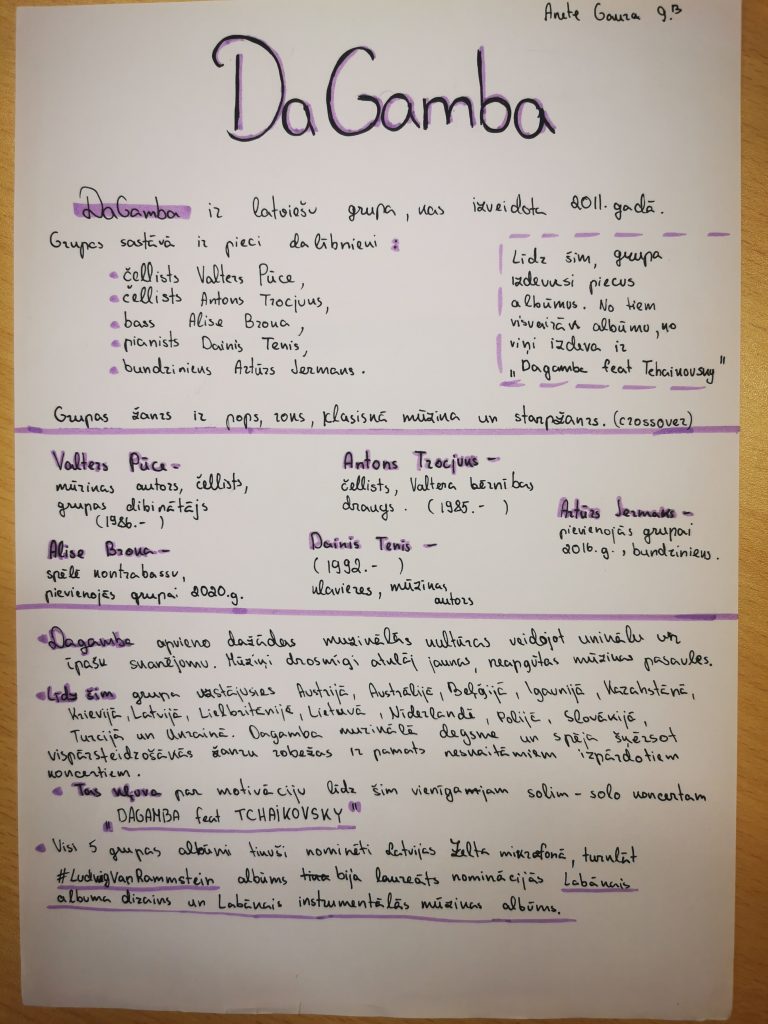 Anete Gauza 9.B
DaGamba
DaGamba ir latviešu grupa, kas izveidota 2011. gadā.
Grupas sastāvā ir pieci dalībnieki :
• čellists Valters Pūce,
• čellists Antons Trocjuks,
• bass Alise Broka,
• pianists Dainis Tenis,
• bundzinieks Artūrs Jermaks.
Līdz šim, grupa
izdevusi piecus
albūmus. No tiem
visvairāk albūmu, ko
viņi izdeva ir
"Dagamba feat Tchaikovsky"
Grupas žanrs ir pops, roks, klasiskā mūzika un starpžanrs. (crossover)
Valters Pūce -
mūzikas autors, čellists,
grupas dibinātājs
(1986.- )
Antons Trocjuks -
čellists, Valtera bērnības
draugs. (1985.- )
Artūrs Jermaks -
pievienojās grupai
2016.g., bundzinieks.
Alise Broka -
spēlē kontrabassu,
pievienojās grupai 2020.g.
Dainis Tenis -
(1992.- )
klavieres, mūzikas
autors
• Dagamba apvieno dažādas muzikālās kultūras veidojot unikālu un
īpašu skanējumu. Mūziķi drosmīgi atklāj jaunas, neapgūtas mūzikas pasaules.
• Līdz šim grupa uzstājusies Austrijā, Austrālijā, Beļģijā, Igaunijā, Kazahstānā,
Krievijā, Latvijā, Lielbritānijā, Lietuvā, Nīderlandē, Polijā, Slovākijā,
Turcijā un Ukrainā. Dagamba muzikālā degsme un spēja šķērsot
vispārsteidzošākās žanru robežas ir pamats neskaitāmiem izpārdotiem
koncertiem.
• Tas kļuva par motivāciju līdz šim vienīgamjam solim - solo koncertam
"DAGAMBA feat TCHAIKOVSKY"
• Visi 5 grupas albūmi tikuši nominēti Latvijas Zelta mikrofonā, turklāt
#LudwigVanRammstein albūms bija laureāts nominācijās Labākais
albuma dizains un Labākais instrumentālās mūzikas albūms.